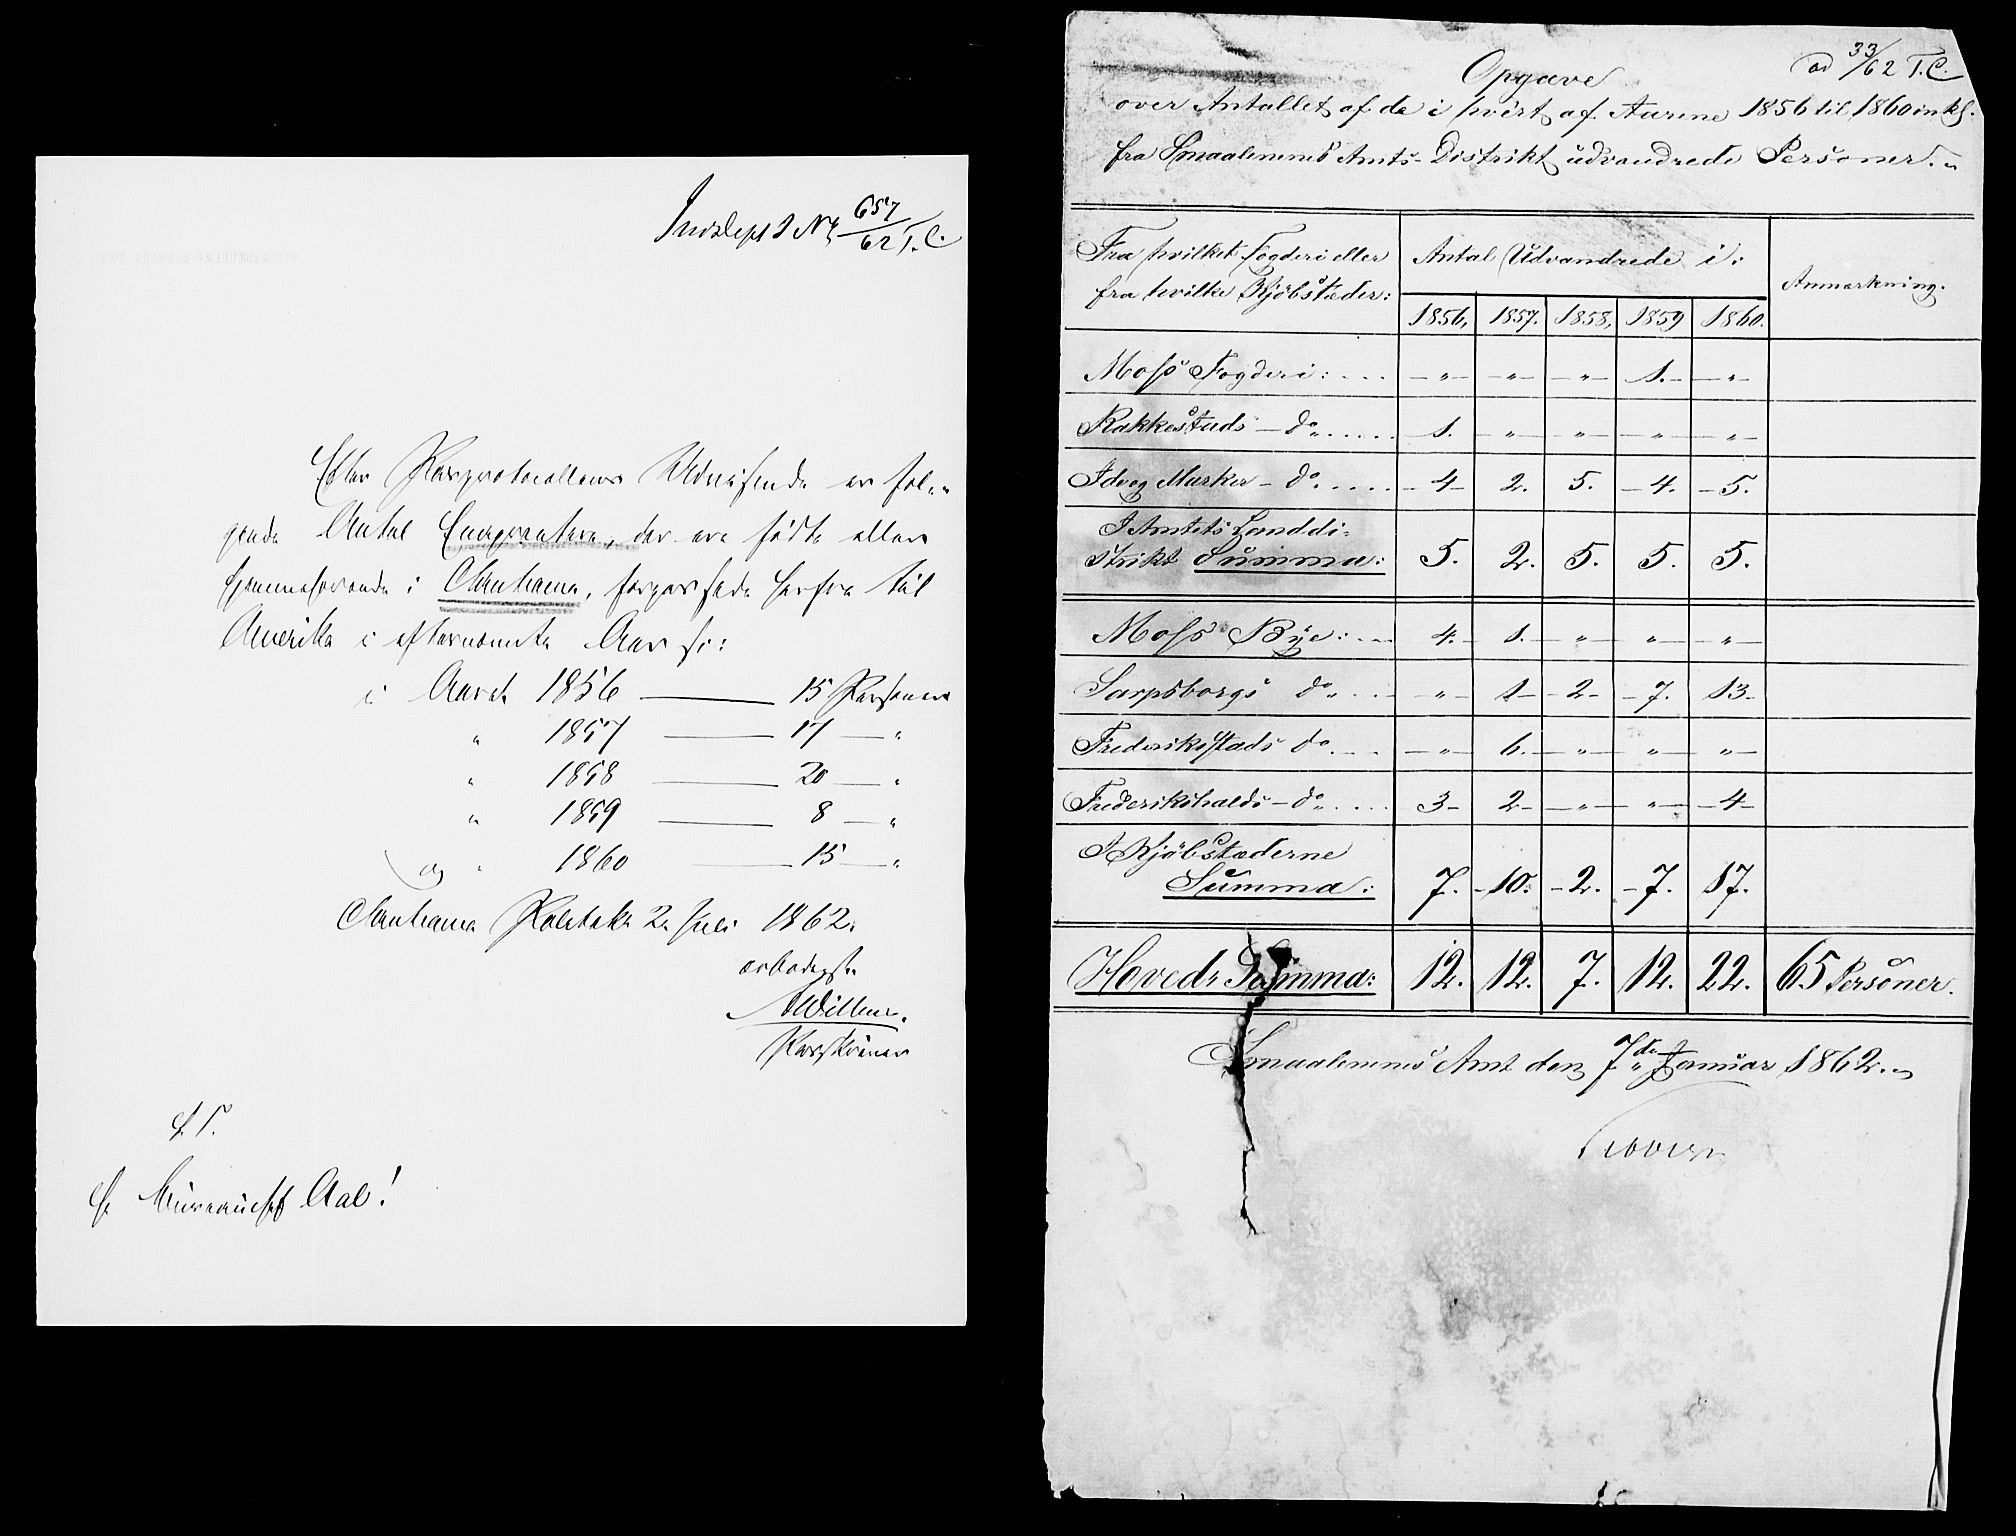 Indepts J No 657/62 T.C.
Efter Pasprotocollens Udvisende er føl-
gende Antal Emigrantere, der ere fødte eller
hjemmehørende i Christiania, forpassede herfra til
Amerika i efternævnte Aar
i Aaret 1856 — 15 Personer
" 1857 — 17 — "
" 1858 — 20 — "
" 1859 — 8 — "
og " 1860 — 15 — "
Christiania Politik 2. Juli 1862.
ærbødigst
Passkriver
S. T.
Hr Bureauchef Aal!
ad 33/62 T.C.
Opgave
over Antallet af de i hvert af Aarene 1856 til 1860 inkl.
fra Smaalenenes Amts-Distrikt udvandrede Personer.
Fra hvilket Fogderi eller
fra hvilke Kjöbstæder:
Antal Udvandrede i:
Anmærkning.
1856, 1857. 1858, 1859 1860.
Moss Fogderi: . . . — " — — " — — " — 1. — — " —
Rakkestads — do. . . . . . 1. — " — — " — — " — — " —
Id og Marker — do. . . . . . 4 2. 5. 4. 5.
I Amtets Landdi-
strikt Summa: 5. 2. 5. 5. 5.
Moss Bye: . . . 4. 1. — " — — " — — " —
Sarpsborgs do. . . . — " — 1 2 7. 13
Frederikstads do. . . . — " — 6. — " — — " — — " —
Frederikshalds — do. . . . . 3 2 — " — — " — 4
I Kjöbstæderne
Summa: 7. 10. 2. 7. 17.
Hoved-Summa: 12. 12. 7. 12. 22. 65 Personer.
Smaalenenes Amt den 7de Januar 1862.